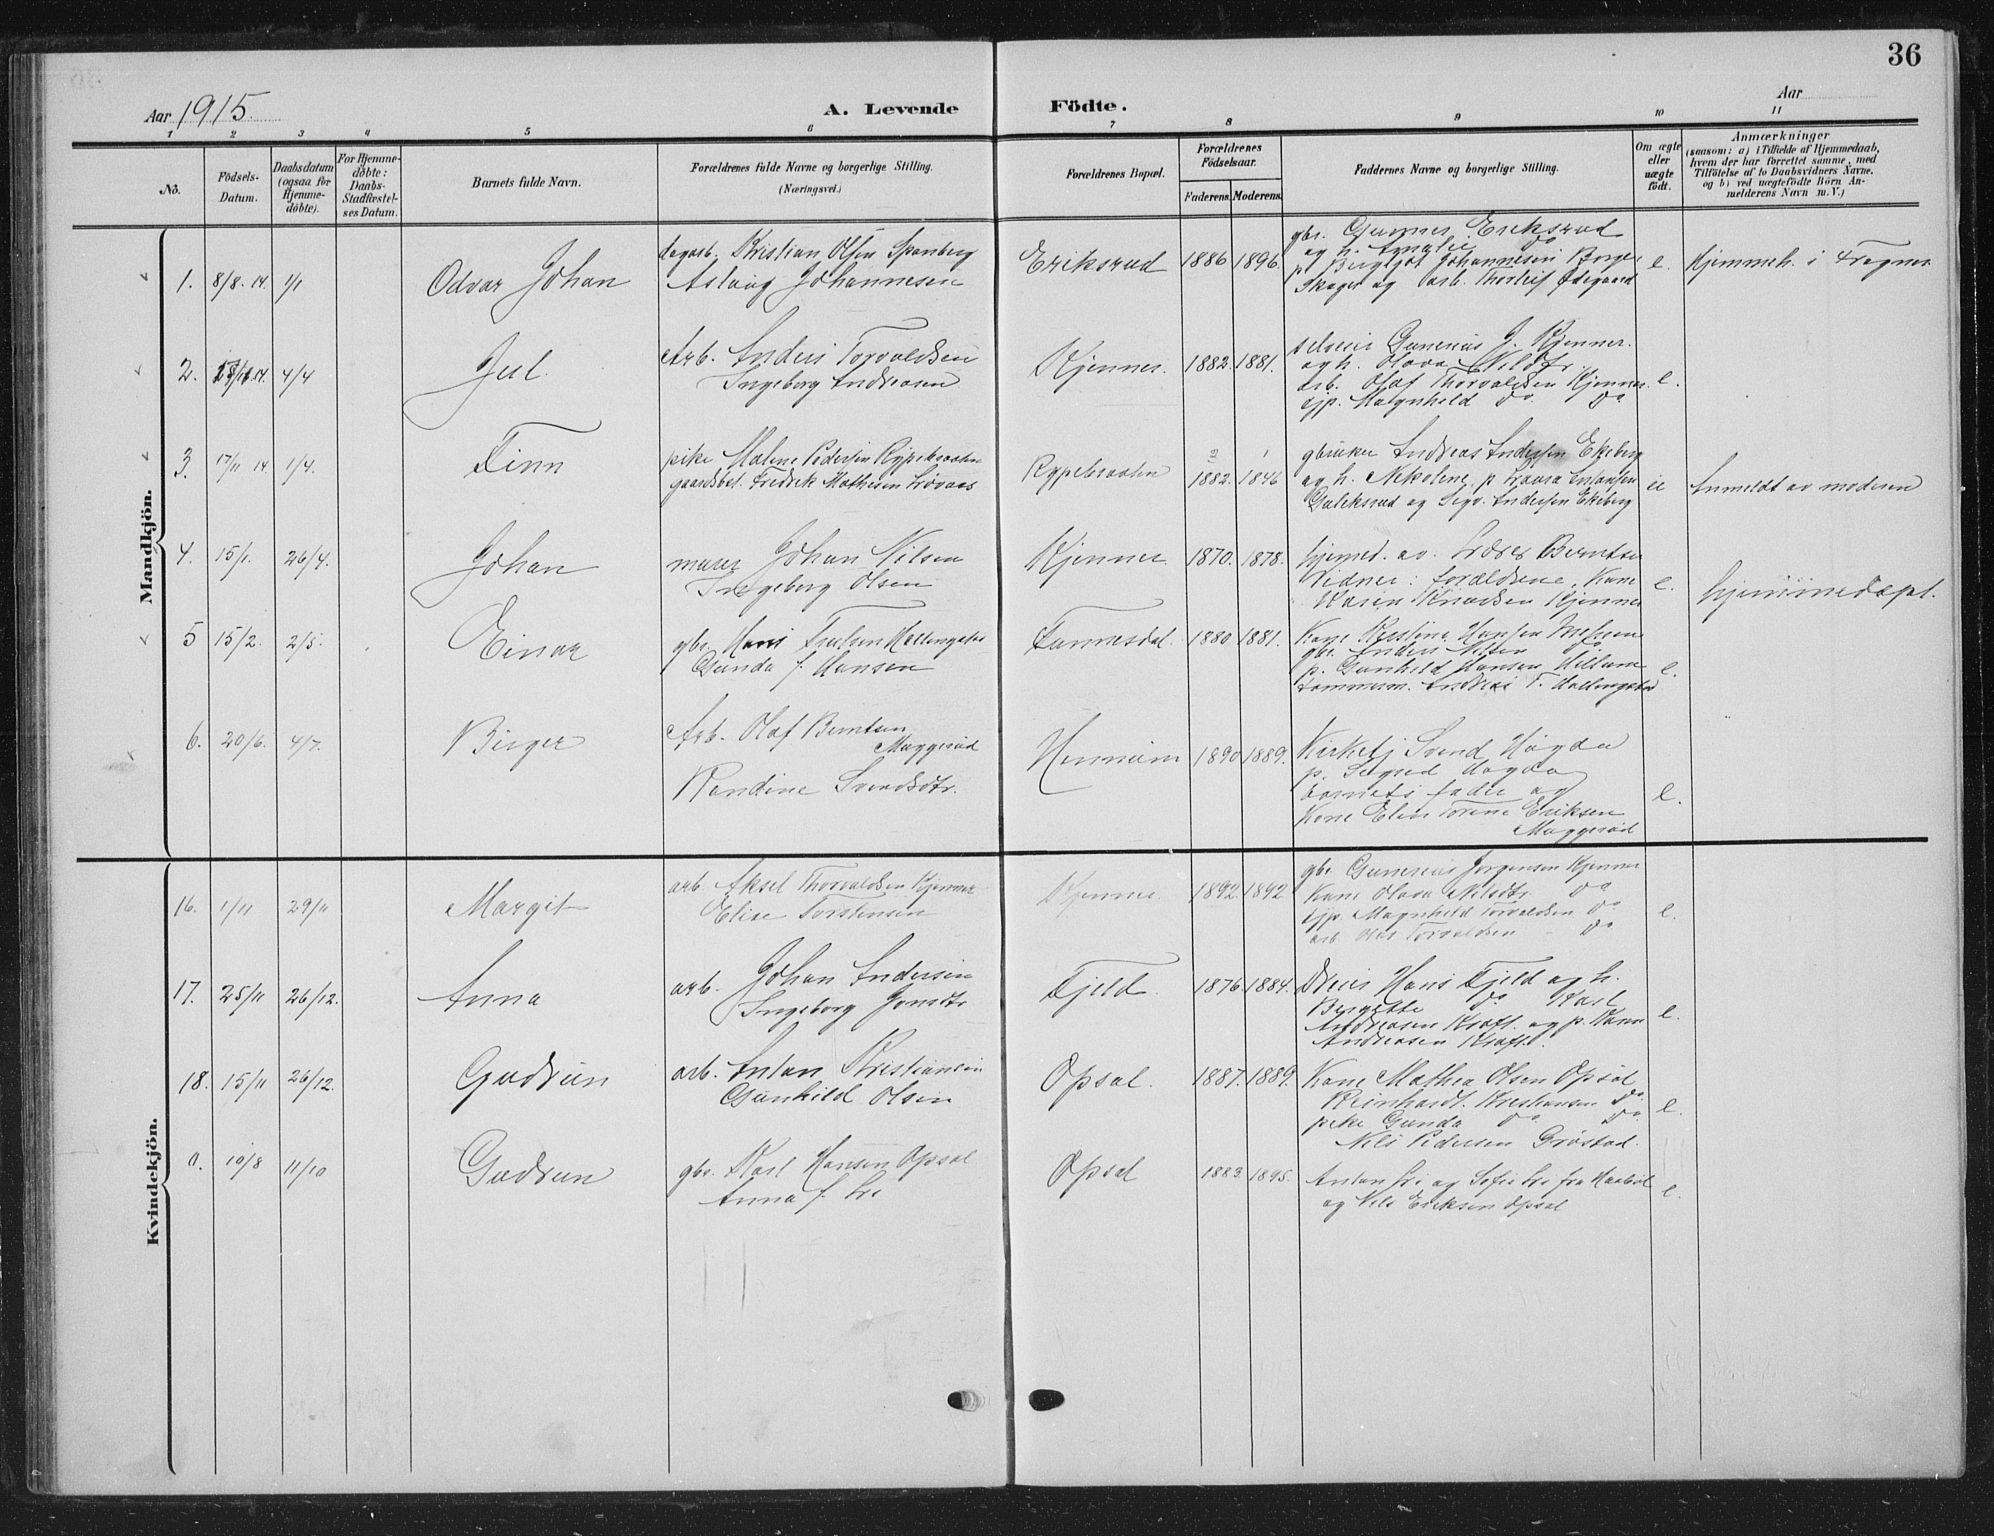 36
Aar 1915. A. Levende Födte. Aar
1 2 3 4 5 6 7 8 9 10 11
No.
Födsels-Datum.
Daabsdatum (ogsaa for Hjemme-döbte).
For Hjemme-döbte: Daabs-Stadfæstel-ses Datum.
Barnets fulde Navn.
Forældrenes fulde Navne og borgerlige Stilling.
(Næringsvei.)
Forældrenes Bopæl.
Forældrenes Födselsaar.
Faderens. Moderens.
Faddernes Navne og borgerlige Stilling.
Om ægte eller uægte födt.
Anmærkninger
(saasom: a) i Tilfælde af Hjemmedaab,
hvem der har forrettet samme, med
Tilföielse af to Daabsvidners Navne.
og b) ved uægtefödte Börn An-
melderens Navn m. V.)
Mandkjön.
1. 8/8. 14. 1/1 Odvar Johan
dagarb. Kristian Olsen Spanberg
Aslaug Johannesen
Eriksrud 1886 1896.
gbr. Gunner Eriksrud
og h. Amalie do
p. Bergljot Johannesen
og arb. Thorleif Ødegaard
e.
Hjemmeh. i Frogner
2. 14. 4/4 Jul.
Arb. Anders Torvaldsen
Ingeborg Andreasen
Kjenner. 1882. 1881.
selveier Gunerius J. Kjenner.
og h. Olava Nilsdtr.
arb. Olaf Thorvaldsen Kjenner.
Magnhild do. do
e.
3. 17/11 14. 1/4. Finn
pike Malene Pedersen Rypebraaten
gaardsbest. Fredrik Mathesen Løvaas
Rypebraaten 1882. 1846
gbruker Andreas Andersen Ekeberg
og h. Nikoline, p. Laura
og Sigv. Andersen Ekeberg
Anmeldt av moderen
4. 15/1. 26/4. Johan
murer Johan Nilsen
Ingeborg Olsen
Kjenner. 1870. 1878.
hjemmed. av. Lærer Berntsen
Vidner: forældrene, Kone
Karen Knudsen Kjenner
e.
hjemmedøpt.
5 15/2. 2/5. Einar
gbr. Hans
Gunda f. Hansen
1880 1881.
Kone Kristine Hansen
gbr. Anders Nilsen do
p. Gunhild Hansen
tømmerm. Andreas T.
e.
6. 20/6. 4/7. Birger
Arb. Olaf Berntsen
Maggerud
Randine Svendsdtr.
1890 1889.
Kirketj. Svend Høgda
p. Sigrid Høgda
barnets fader og
Kone Elen Eriksen
Maggerud
e.
Kvindekjön.
16. 1/11 29/11 Margit
arb. Aksel Thorvaldsen Kjenner
Elise Torstensen
Kjenner 1892. 1892
gbr. Gunerius Jørgensen Kjenner
Kone Olava Nilsdtr. do
Magnhild Torvaldsen do
arb. Olaf Torvaldsen - do
e.
17. 25/11 26/12. Anna
arb. Johan Andersen
Ingeborg Jonsdtr.
Fjeld. 1876. 1884.
Hans Fjeld og h.
Bergitte do Karl
Andreasen Kraft. og p.
Andreasen Kraft.
e.
18. 15/11 26/12. Gudrun
arb. Anton Kristiansen
Gunhild Olsen
Opsal. 1887. 1889.
Kone Mathea Olsen Opsal
Reinhardt. Kristiansen do.
pike Gunda do do
Nils Pedersen Grøstad.
e.
0. 10/8 11/10 Gudrun
gbr. Karl Hansen Opsal
Anna f. Lie
Opsal 1883. 1895.
Anton Lie og Sofie Lie fra
og Nils Eriksen Opsal
e.